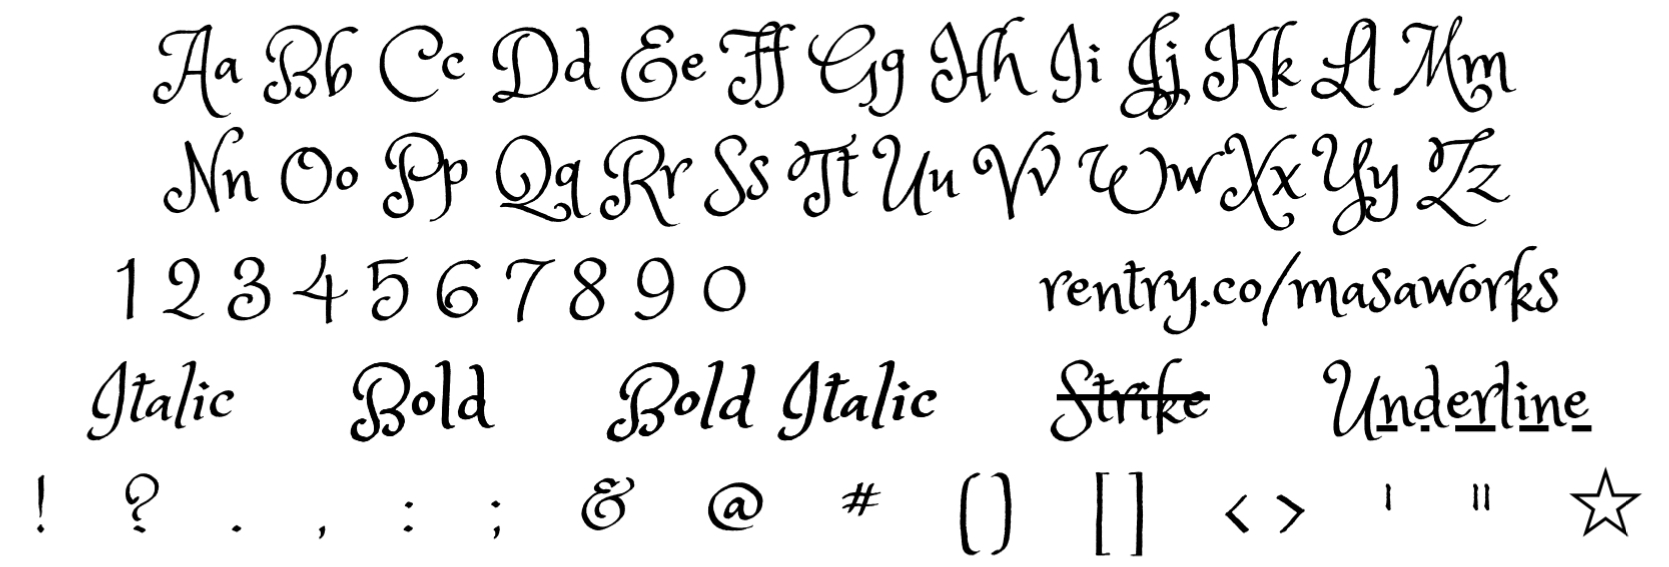 Aa Bb Cc Dd Ee Ff Gg Hh Ii Jj Kk Ll Mm
Nn Oo Pp Qq Rr Ss Tt Uu Vv Ww Xx Yy Zz
1 2 3 4 5 6 7 8 9 0 rentry.co/masaworks
Italic Bold Bold Italic Strike Underline
! ? . , : ; & @ # () [] < > ' " ☆